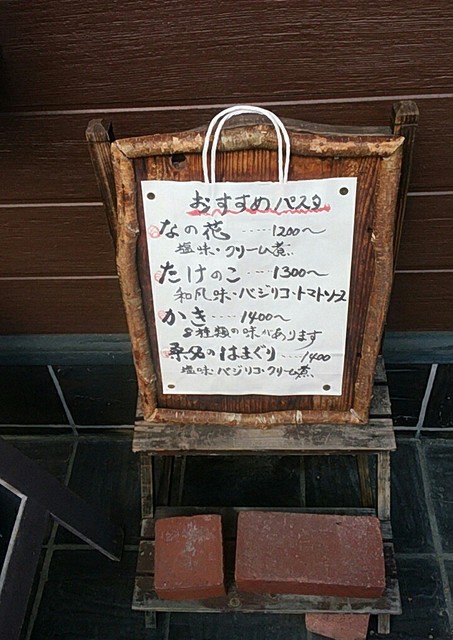 おすすめパスタ
なの花 ‥‥‥1200〜
塩味・クリーム煮
たけのこ ‥‥‥1300〜
和風味・バジリコ・トマトソース
かき ‥‥‥1400〜
8種類の味があります
桑名のはまぐり ‥‥‥1400
塩味・バジリコ・クリーム煮